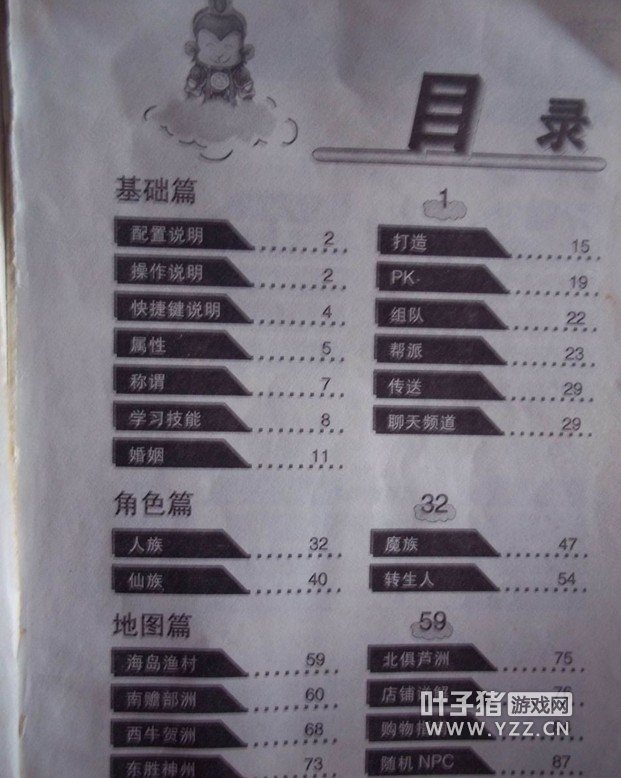 目录
基础篇 1
配置说明 2
操作说明 2
快捷键说明 4
属性 5
称谓 7
学习技能 8
婚姻 11
打造 15
PK 19
组队 22
帮派 23
传送 29
聊天频道 29
角色篇 32
人族 32
仙族 40
魔族 47
转生人 54
地图篇 59
海岛渔村 59
南赡部洲 60
西牛贺洲 68
东胜神州 73
北俱芦洲 75
店铺
购物
随机 NPC 87
叶子猪 游戏网
WWW.YZZ.CN